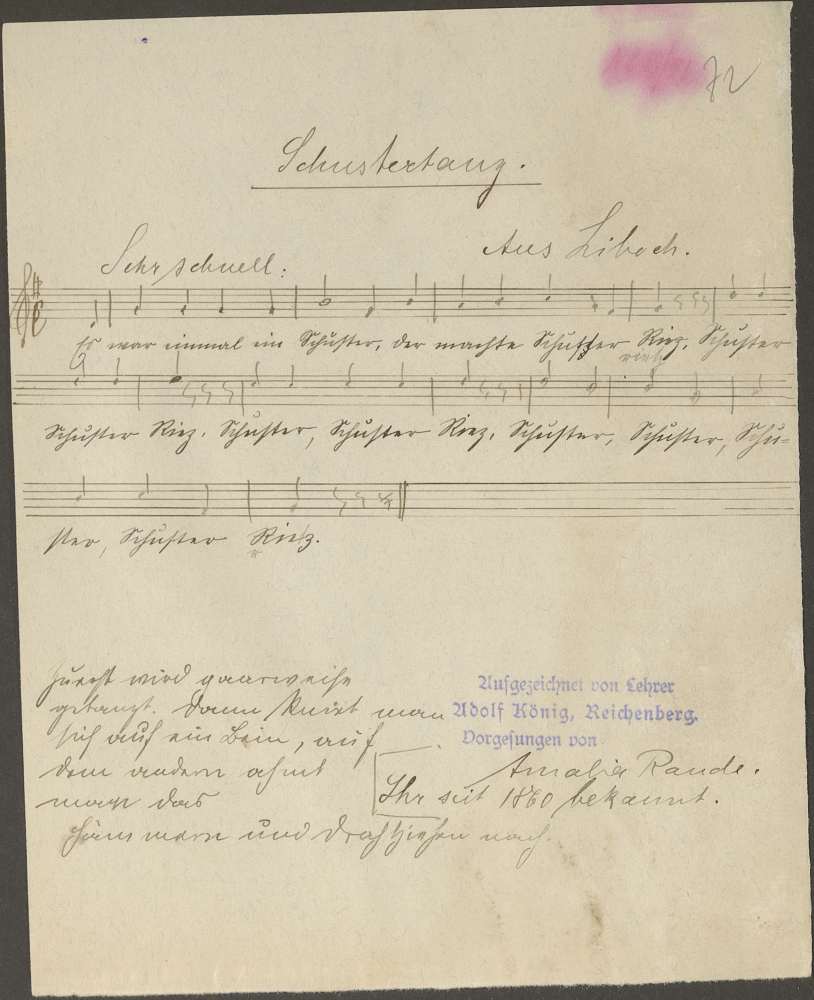 72
Schustertanz.
Aus Liboch.
Sehr schnell:
Es war einmal ein Schuster, der machte Schuster Riez, Schuster
Schuster Riez. Schuster, Schuster Riez, Schuster, Schuster, Schu-
ster, Schuster Riez.
Zuerst wird paarweise
getanzt. Dann kniet man
sich auf ein Bein, auf
dem andern ahmt
man das
Hämmern und Drahtziehen nach.
Aufgezeichnet von Lehrer
Adolf König, Reichenberg.
Vorgesungen von
Amalia Raude.
Ihr seit 1860 bekannt.